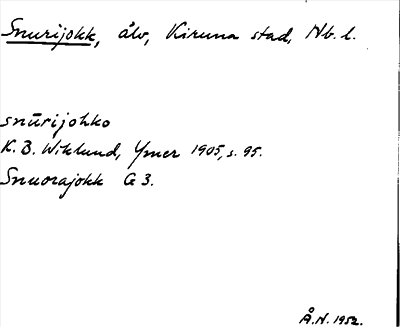 Snurijokk, älv, Kiruna stad, Nb. l.
snūrijohko
K. B. Wiklund, Ymer 1905, s. 95.
Snuorajokk G 3.
Å.N. 1952.